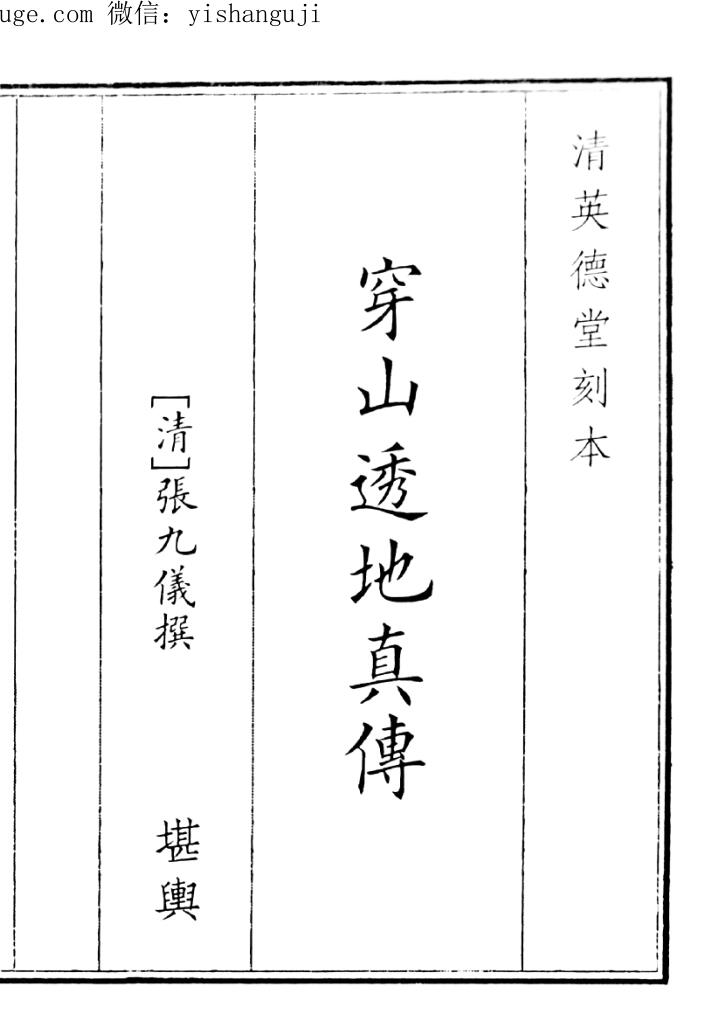 uge.com 微信：yishanguji
清英德堂刻本
穿山透地真傳
[清]張九儀撰
堪輿